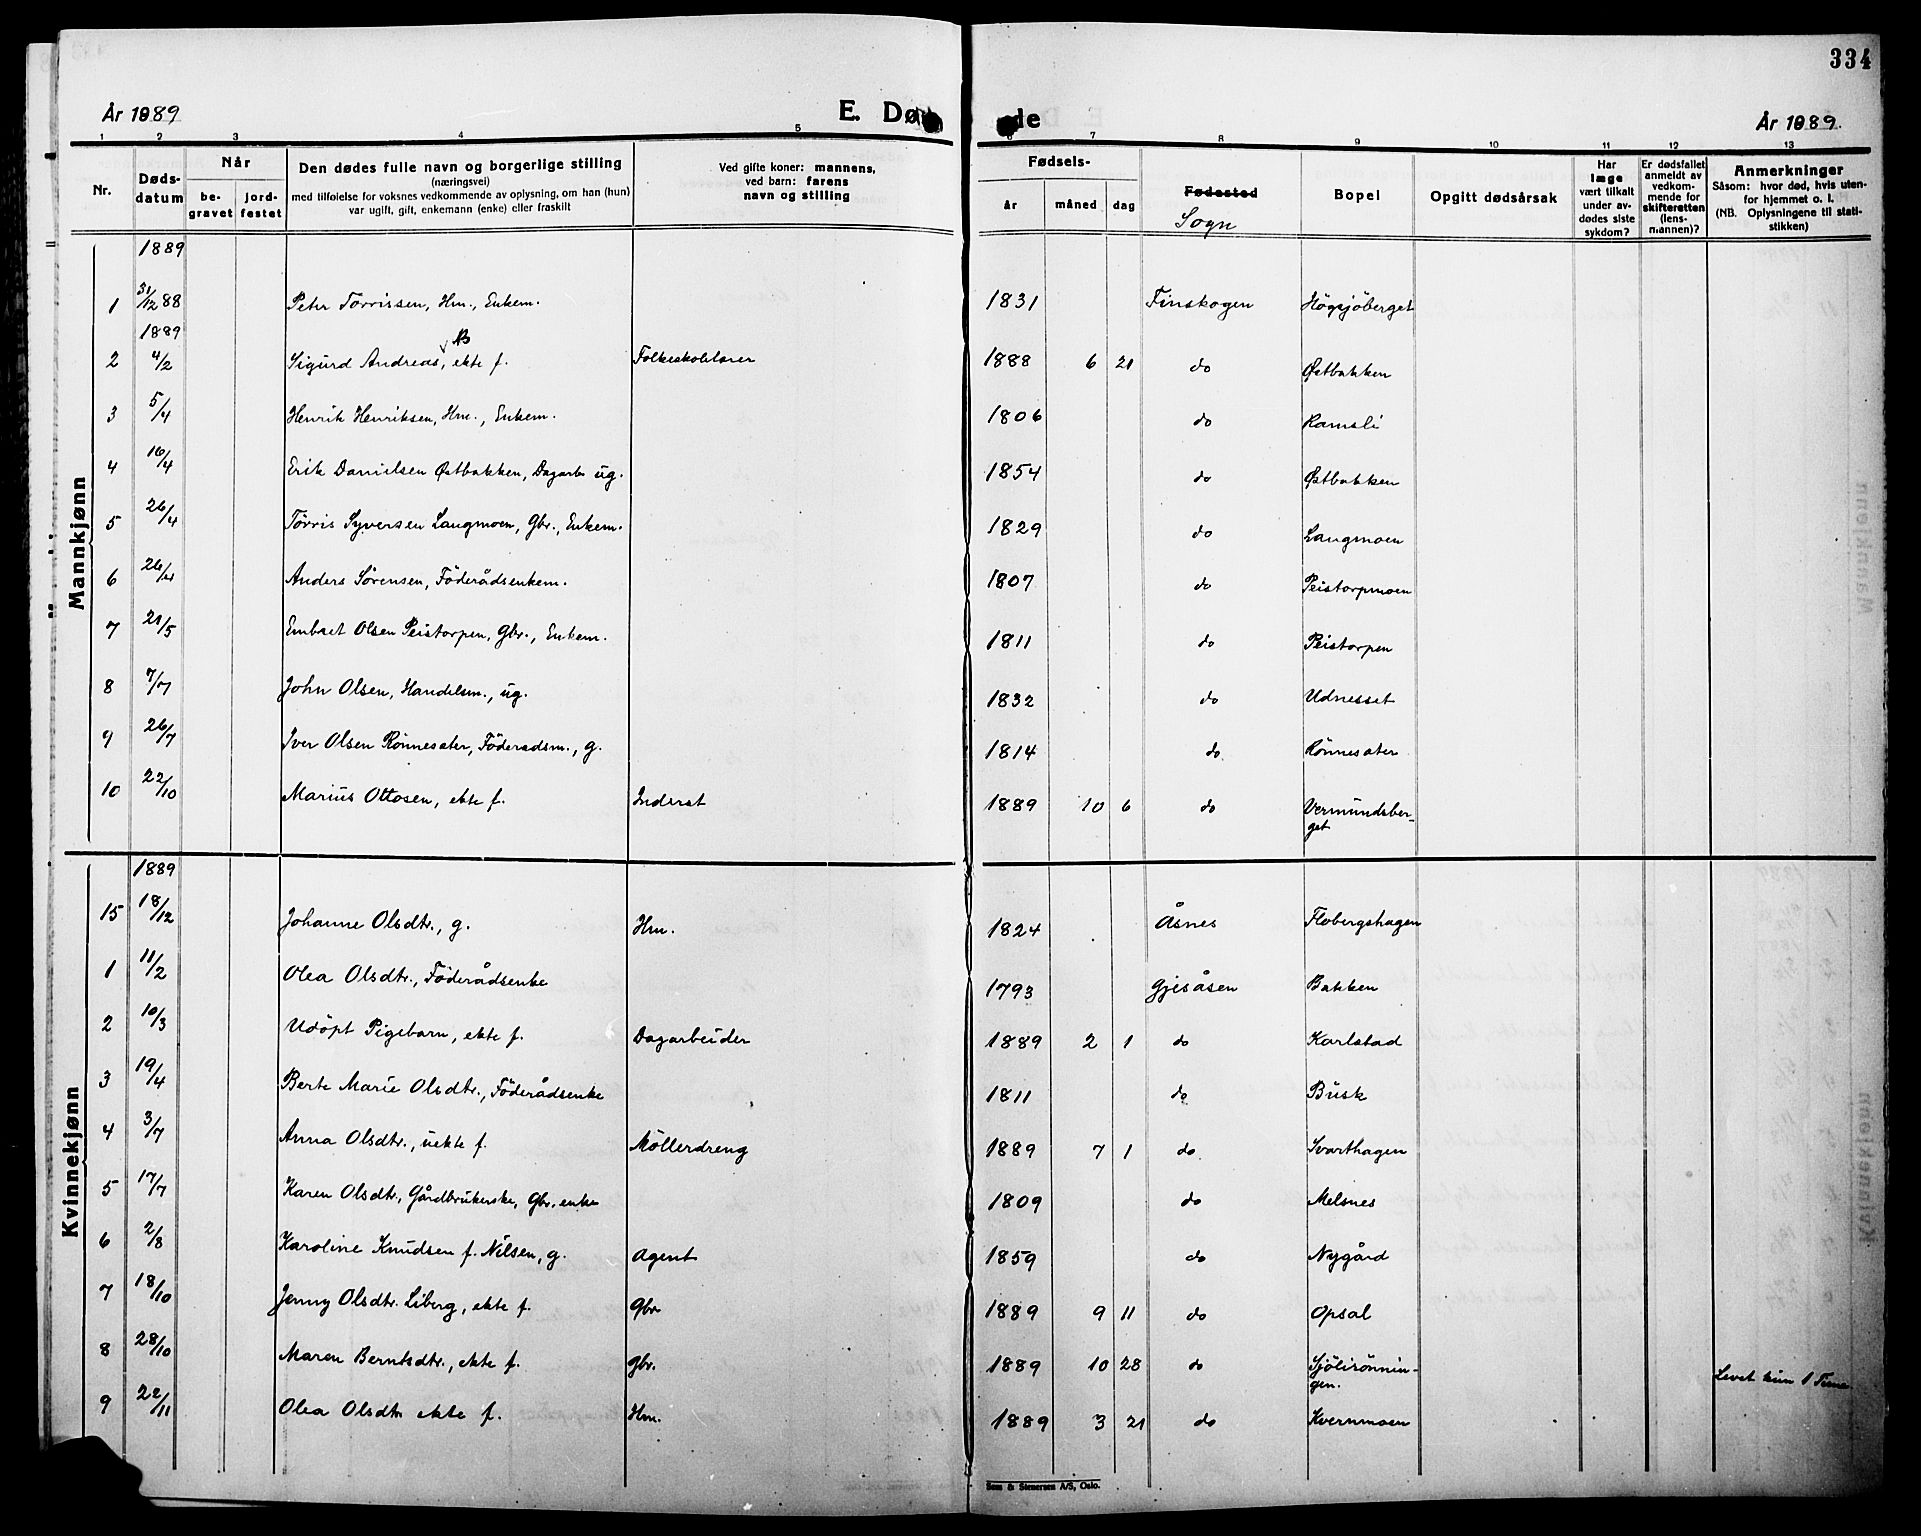 334
År 1889
E. Dø de
År 1889.
1 2 3 4 5 6 7 8 9 10 11 12 13
Nr.
Døds-
datum
Når
be-
gravet
jord-
festet
Den dødes fulle navn og borgerlige stilling
(næringsvei)
med tilføielse for voksnes vedkommende av oplysning, om han (hun)
var ugift, gift, enkemann (enke) eller fraskilt
Ved gifte koner: mannens,
ved barn: farens
navn og stilling
Fødsels-
år måned dag
Fødested
Sogn
Bopel
Opgitt dødsårsak
Har
læge
vært tilkalt
under av-
dødes siste
sykdom?
Er dødsfallet
anmeldt av
vedkom-
mende for
skifteretten
(lens-
mannen)?
Anmerkninger
Såsom: hvor død, hvis uten-
for hjemmet o. l.
(NB. Oplysningene til stati-
stikken)
Mannkjønn
1889
1 31/12 88 Peter Törrissen, Hm., Enkem. 1831 Finskogen Högsjöberget
1889
NB
2 4/2 Sigurd Andreas, ekte f. Folkeskolelærer 1888 6 21 do Østbakken
3 5/4 Henrik Henriksen, Hm., Enkem. 1806 do Ramsli
4 16/4 Erik Danielsen Østbakken, Dagarb. ug. 1854 do Østbakken
5 26/4 Törris Syversen Langmoen, Gbr., Enkem. 1829 do Langmoen
6 26/4 Anders Sörensen, Föderådsenkem. 1807 do Peistorpmoen
7 21/5 Embret Olsen Peistorpen, Gbr., Enkem. 1811 do Peistorpen
8 7/7 John Olsen, Handelsm., ug. 1832 do Udnesset
9 26/7 Iver Olsen Rönnesater, Föderadsm., g. 1814 do Rönnesater
10 22/10 Marius Ottosen, ekte f. Inderst 1889 10 6 do Vermundsber-
get
Kvinnekjønn
1889
15 18/12 Johanne Olsdtr., g. Hm. 1824 Åsnes Flobergshagen
1 11/2 Olea Olsdtr., Föderådsenke 1793 Gjesåsen Bakken
2 10/3 Udöpt Pigebarn, ekte f. Dagarbeider 1889 2 1 do Karlstad
3 19/4 Berte Marie Olsdtr., Föderådsenke 1811 do Busk
4 3/7 Anna Olsdtr., uekte f. Möllerdreng 1889 7 1 do Svarthagen
5 17/7 Karen Olsdtr., Gårdbrukerske, Gbr. enke 1809 do Melsnes
6 2/8 Karoline Knudsen f. Nilsen, g. Agent 1859 do Nygård
7 18/10 Jenny Olsdtr. Liberg, ekte f. Gbr 1889 9 11 do Opsal
8 28/10 Maren Berntsdtr., ekte f. Gbr. 1889 10 28 do Sjölirönnin-
gen. Levet kun 1 Time
9 22/11 Olea Olsdtr ekte f. Hm. 1889 3 21 do Kvernmoen
Sem & Stenersen A/S, Oslo.